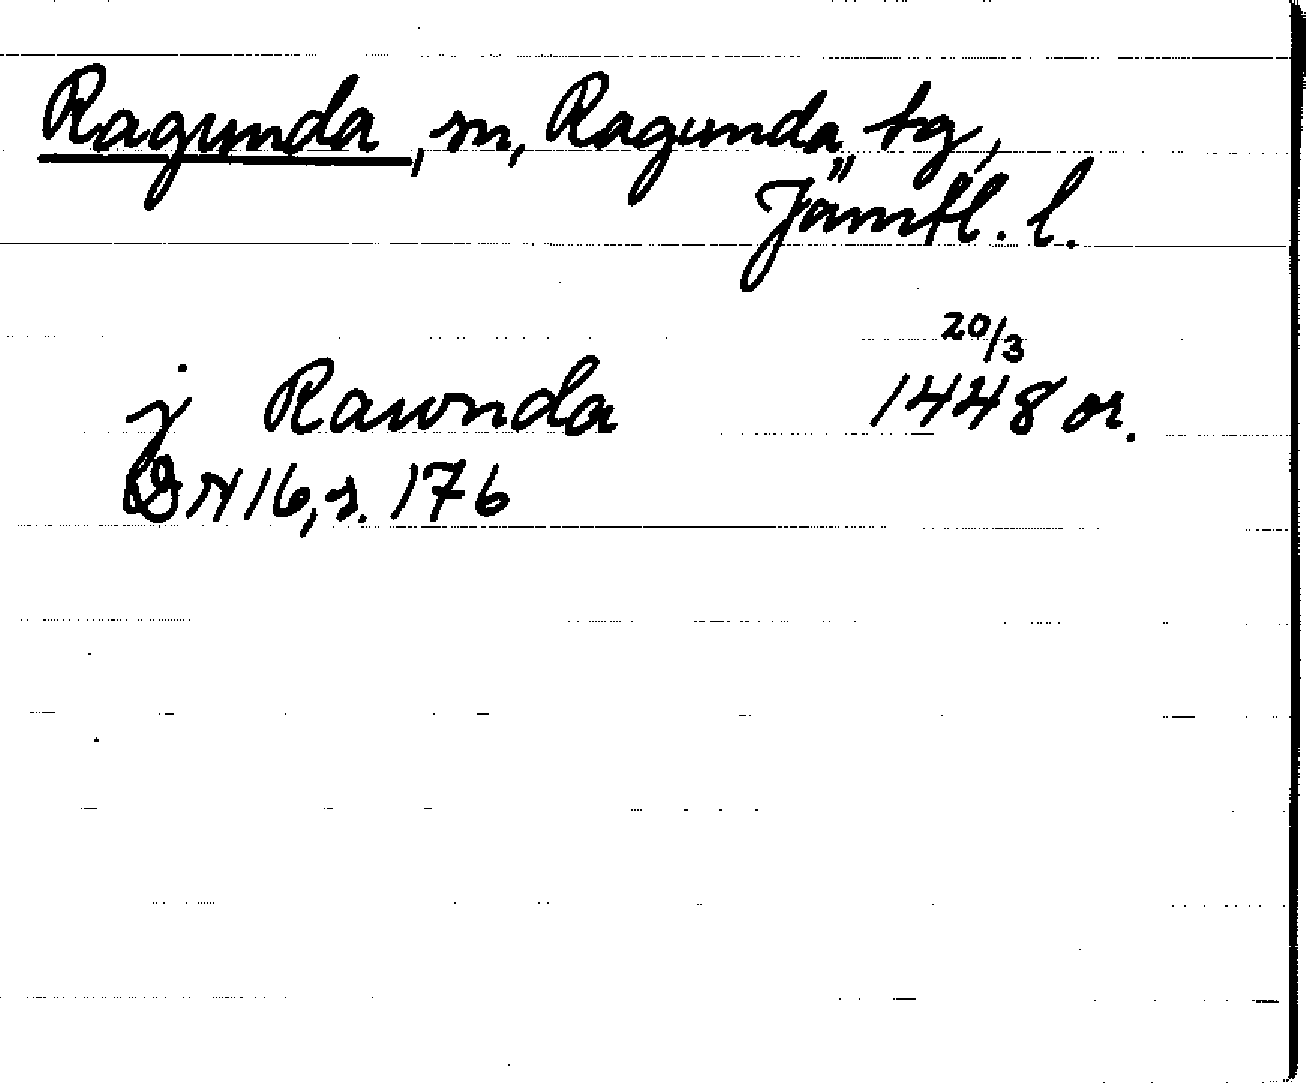 Ragunda, sn, Ragunda tg,
Jämtl. l.
20/3
j Rawnda 1448 or.
DN 16, s. 176